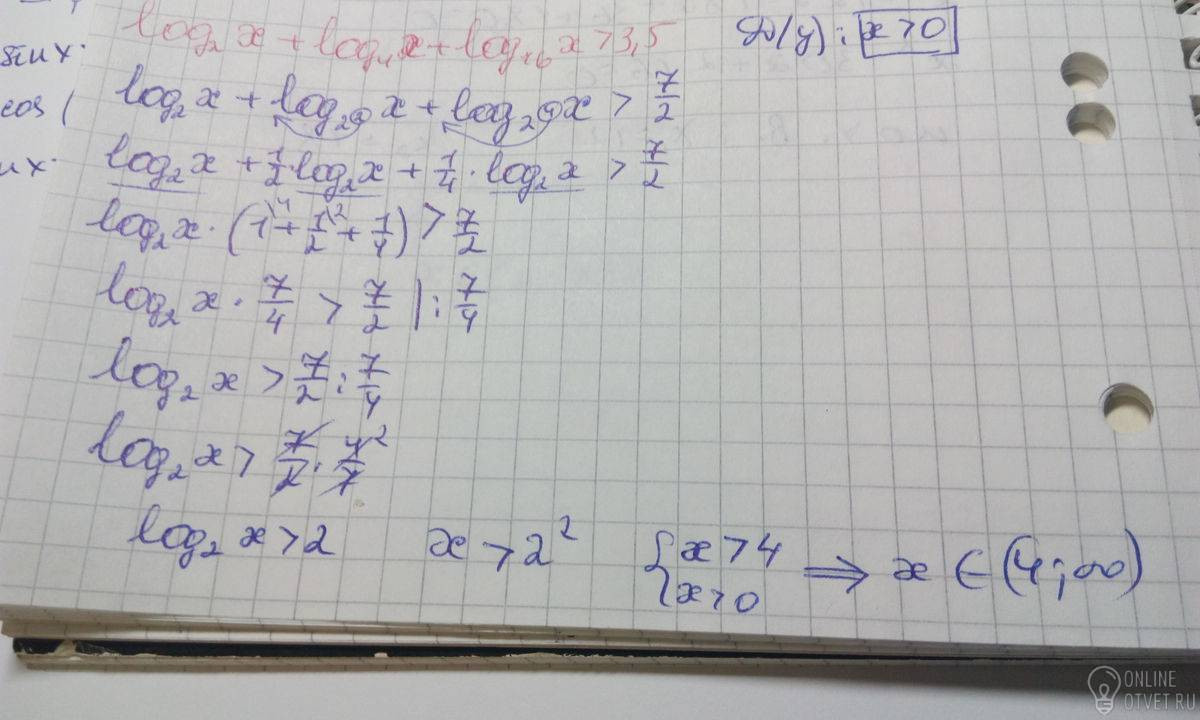 log₂ x + log₄ x + log₁₆ x > 3,5 D(y): x > 0
sin x
cos (
log₂ x + log₂② x + log₂④ x > 7/2
log₂ x + 1/2 · log₂ x + 1/4 · log₂ x > 7/2
log₂ x · (1\⁴ + 1/2\² + 1/4) > 7/2
log₂ x · 7/4 > 7/2 | : 7/4
log₂ x > 7/2 : 7/4
log₂ x > 7/2 · 4²/7
log₂ x > 2 x > 2² { x > 4 x > 0 ⇒ x ∈ (4; ∞)
ONLINE
OTVET.RU